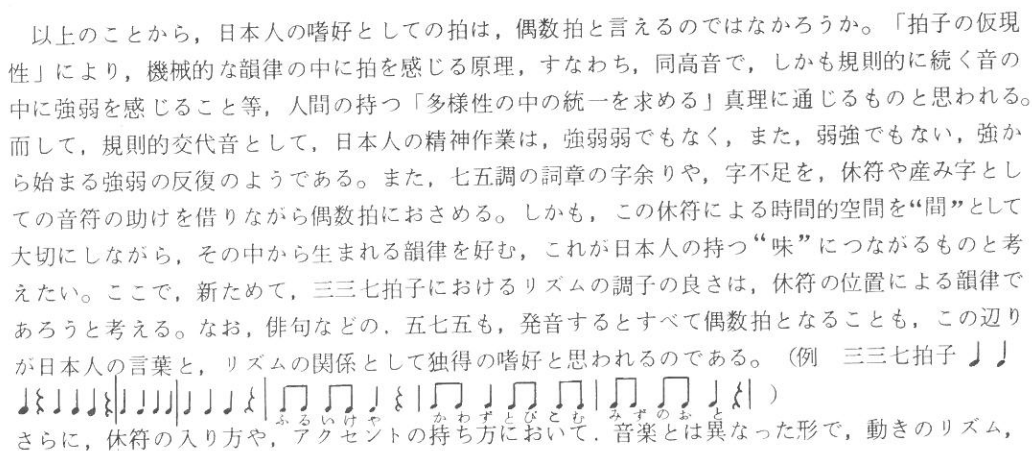 以上のことから，日本人の嗜好としての拍は，偶数拍と言えるのではなかろうか。「拍子の仮現
性」により，機械的な韻律の中に拍を感じる原理，すなわち，同高音で，しかも規則的に続く音の
中に強弱を感じること等，人間の持つ「多様性の中の統一を求める」真理に通じるものと思われる。
而して，規則的交代音として，日本人の精神作業は，強弱弱でもなく，また，弱強でもない，強か
ら始まる強弱の反復のようである。また，七五調の詞章の字余りや，字不足を，休符や産み字とし
ての音符の助けを借りながら偶数拍におさめる。しかも，この休符による時間的空間を“間”として
大切にしながら，その中から生まれる韻律を好む，これが日本人の持つ“味”につながるものと考
えたい。ここで，新ためて，三三七拍子におけるリズムの調子の良さは，休符の位置による韻律で
あろうと考える。なお，俳句などの．五七五も，発音するとすべて偶数拍となることも，この辺り
が日本人の言葉と，リズムの関係として独得の嗜好と思われるのである。（例　三三七拍子 ♩ ♩
ふるいけや　かわずとびこむ　みずのおと ）
さらに，休符の入り方や，アクセントの持ち方において．音楽とは異なった形で，動きのリズム，